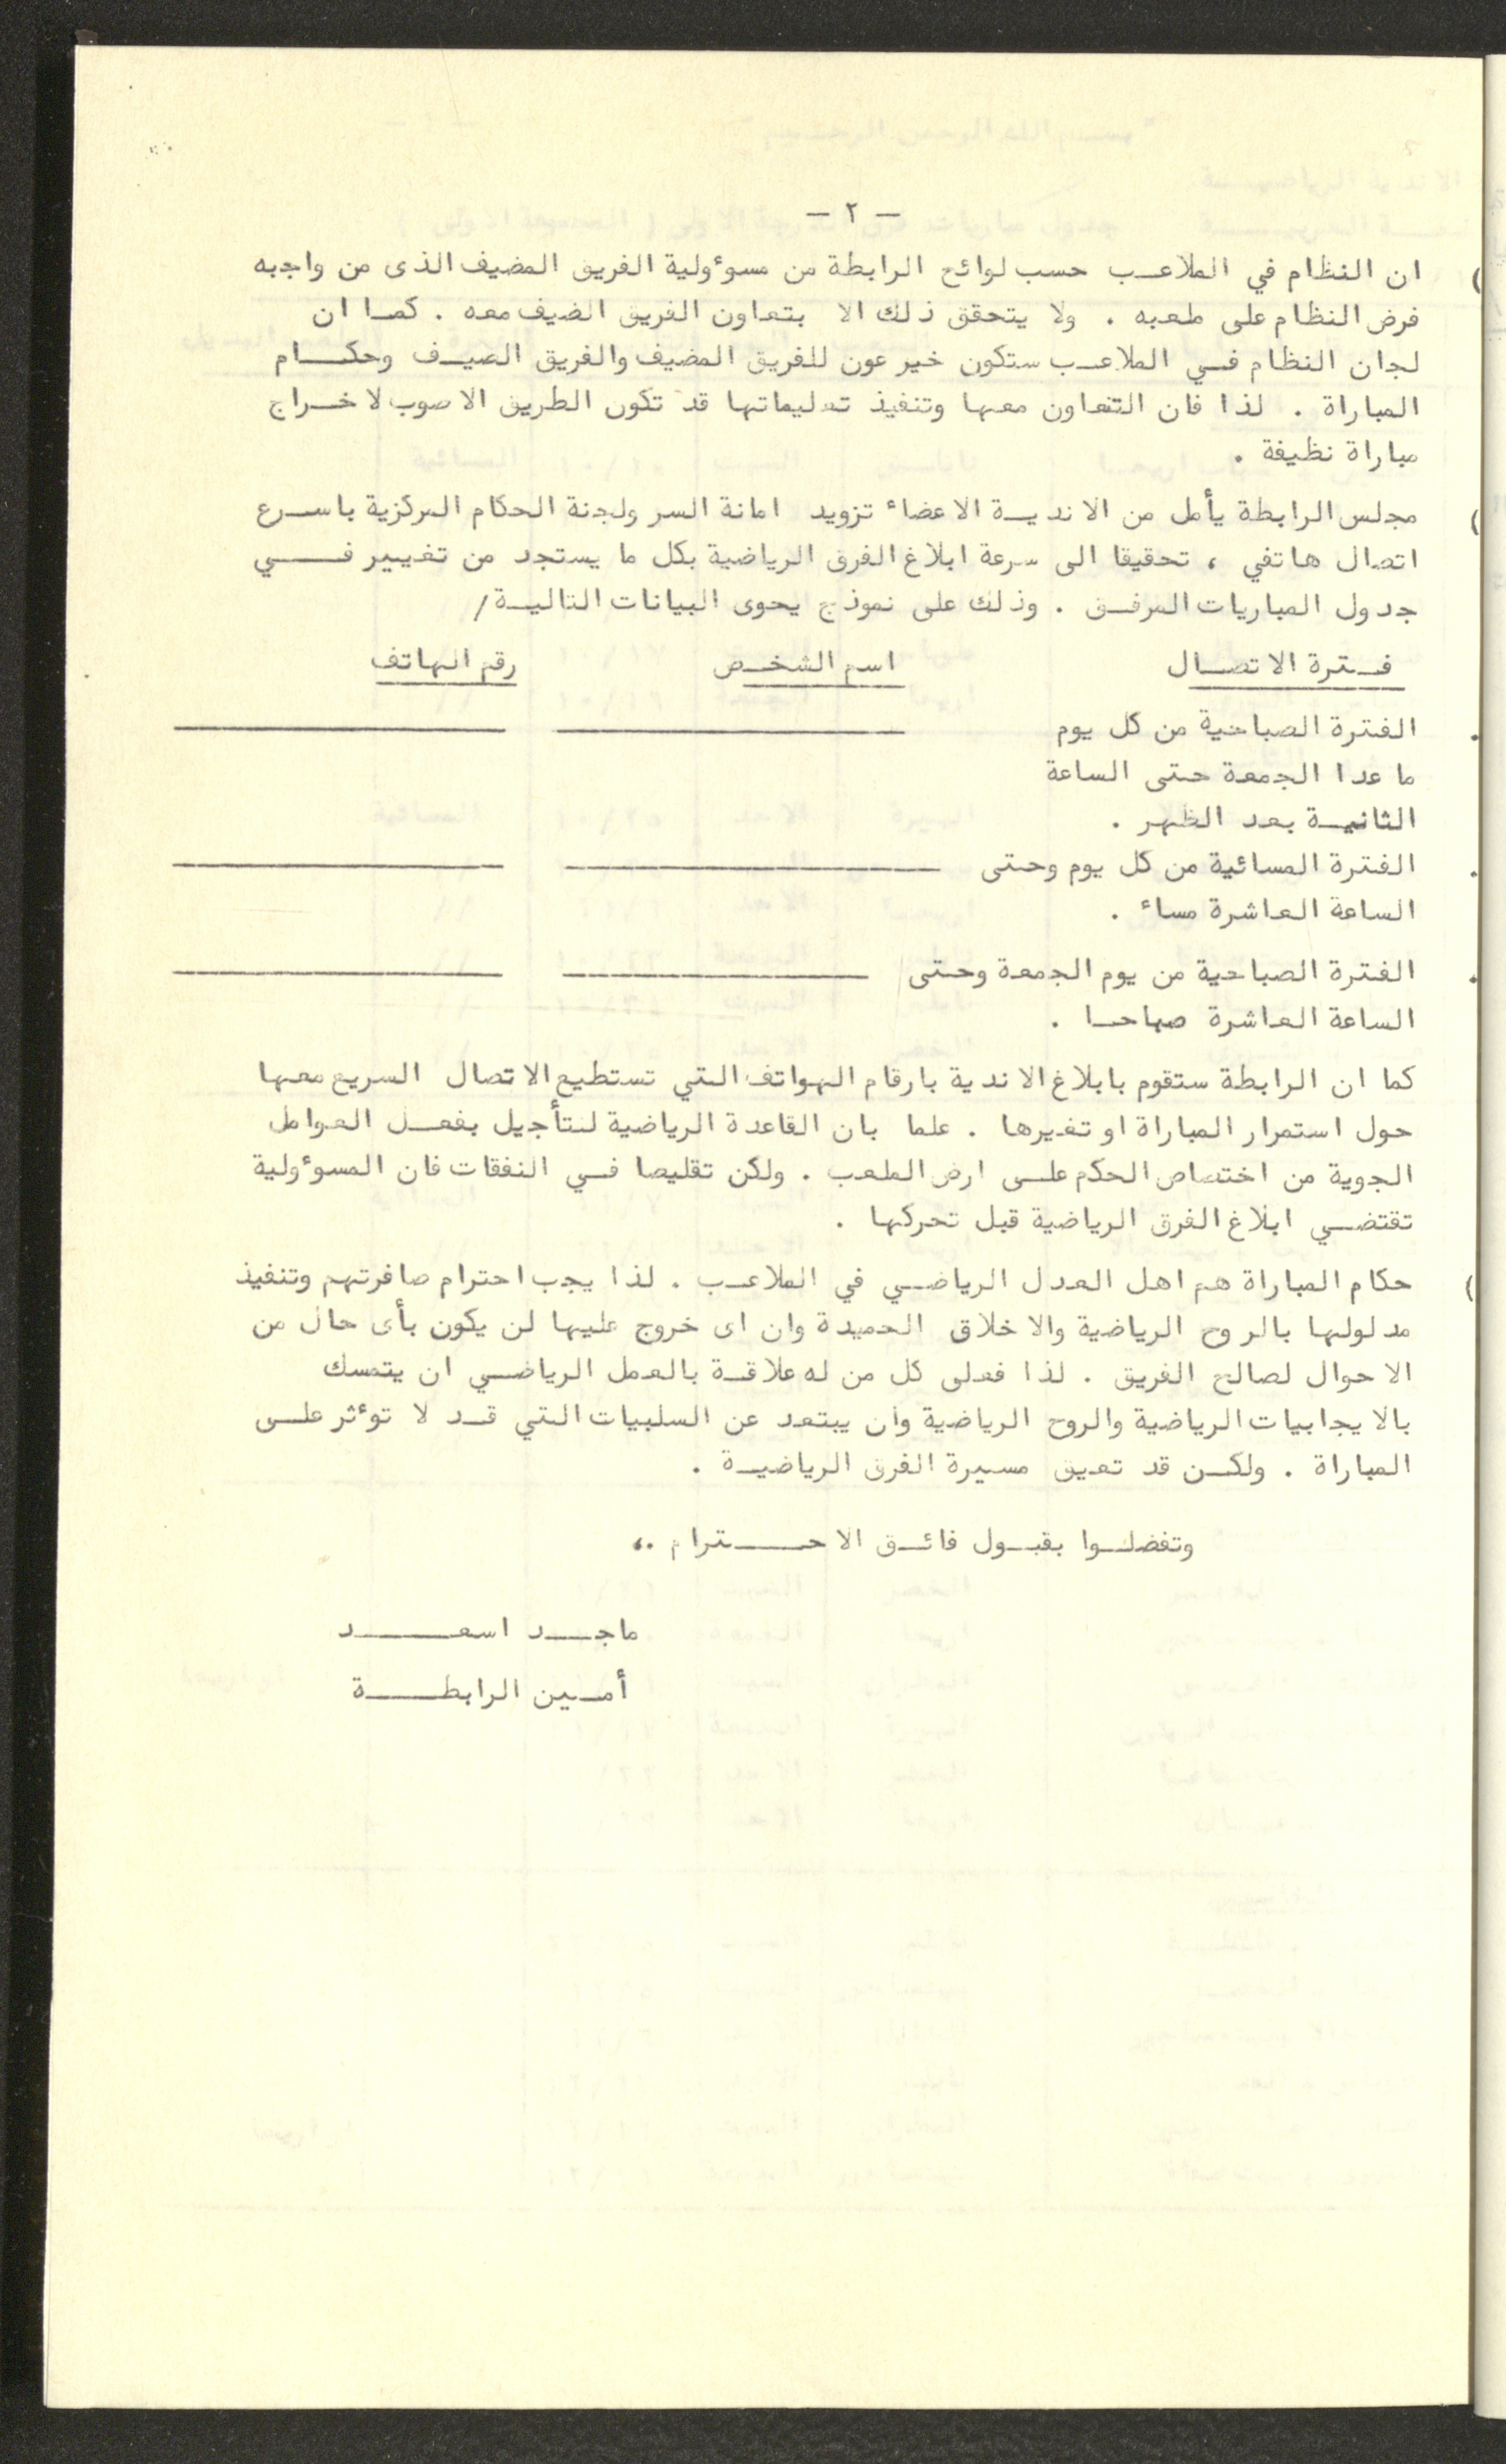 — ٢ —
) ان النظام في الملاعب حسب لوائح الرابطة من مسوءولية الفريق المضيف الذى من واجبه
فرض النظام على ملعبه . ولا يتحقق ذلك الا بتعاون الفريق الضيف معه . كما ان
لجان النظام في الملاعب ستكون خير عون للفريق المضيف والفريق الضيف وحكام
المباراة . لذا فان التعاون معها وتنفيذ تعليماتها قد تكون الطريق الاصوب لاخراج
مباراة نظيفة .
) مجلس الرابطة يأمل من الاندية الاعضاء تزويد امانة السر ولجنة الحكام المركزية باسرع
اتصال هاتفي ، تحقيقا الى سرعة ابلاغ الفرق الرياضية بكل ما يستجد من تغيير في
جدول المباريات المرفق . وذلك على نموذج يحوى البيانات التالية /
فترة الاتصال اسم الشخص رقم الهاتف
. الفترة الصباحية من كل يوم
ما عدا الجمعة حتى الساعة
الثانية بعد الظهر .
. الفترة المسائية من كل يوم وحتى
الساعة العاشرة مساء .
. الفترة الصباحية من يوم الجمعة وحتى
الساعة العاشرة صباحا .
كما ان الرابطة ستقوم بابلاغ الاندية بارقام الهواتف التي تستطيع الاتصال السريع معها
حول استمرار المباراة او تغيرها . علما بان القاعدة الرياضية لتأجيل بفعل العوامل
الجوية من اختصاص الحكم على ارض الملعب . ولكن تقليصا في النفقات فان المسوءولية
تقتضي ابلاغ الفرق الرياضية قبل تحركها .
) حكام المباراة هم اهل العدل الرياضي في الملاعب . لذا يجب احترام صافرتهم وتنفيذ
مدلولها بالروح الرياضية والاخلاق الحميدة وان اى خروج عليها لن يكون بأى حال من
الاحوال لصالح الفريق . لذا فعلى كل من له علاقة بالعمل الرياضي ان يتمسك
بالايجابيات الرياضية والروح الرياضية وان يبتعد عن السلبيات التي قد لا توءثر على
المباراة . ولكن قد تعيق مسيرة الفرق الرياضية .
وتفضلوا بقبول فائق الاحترام ،،
ماجد اسعد
أمين الرابطة